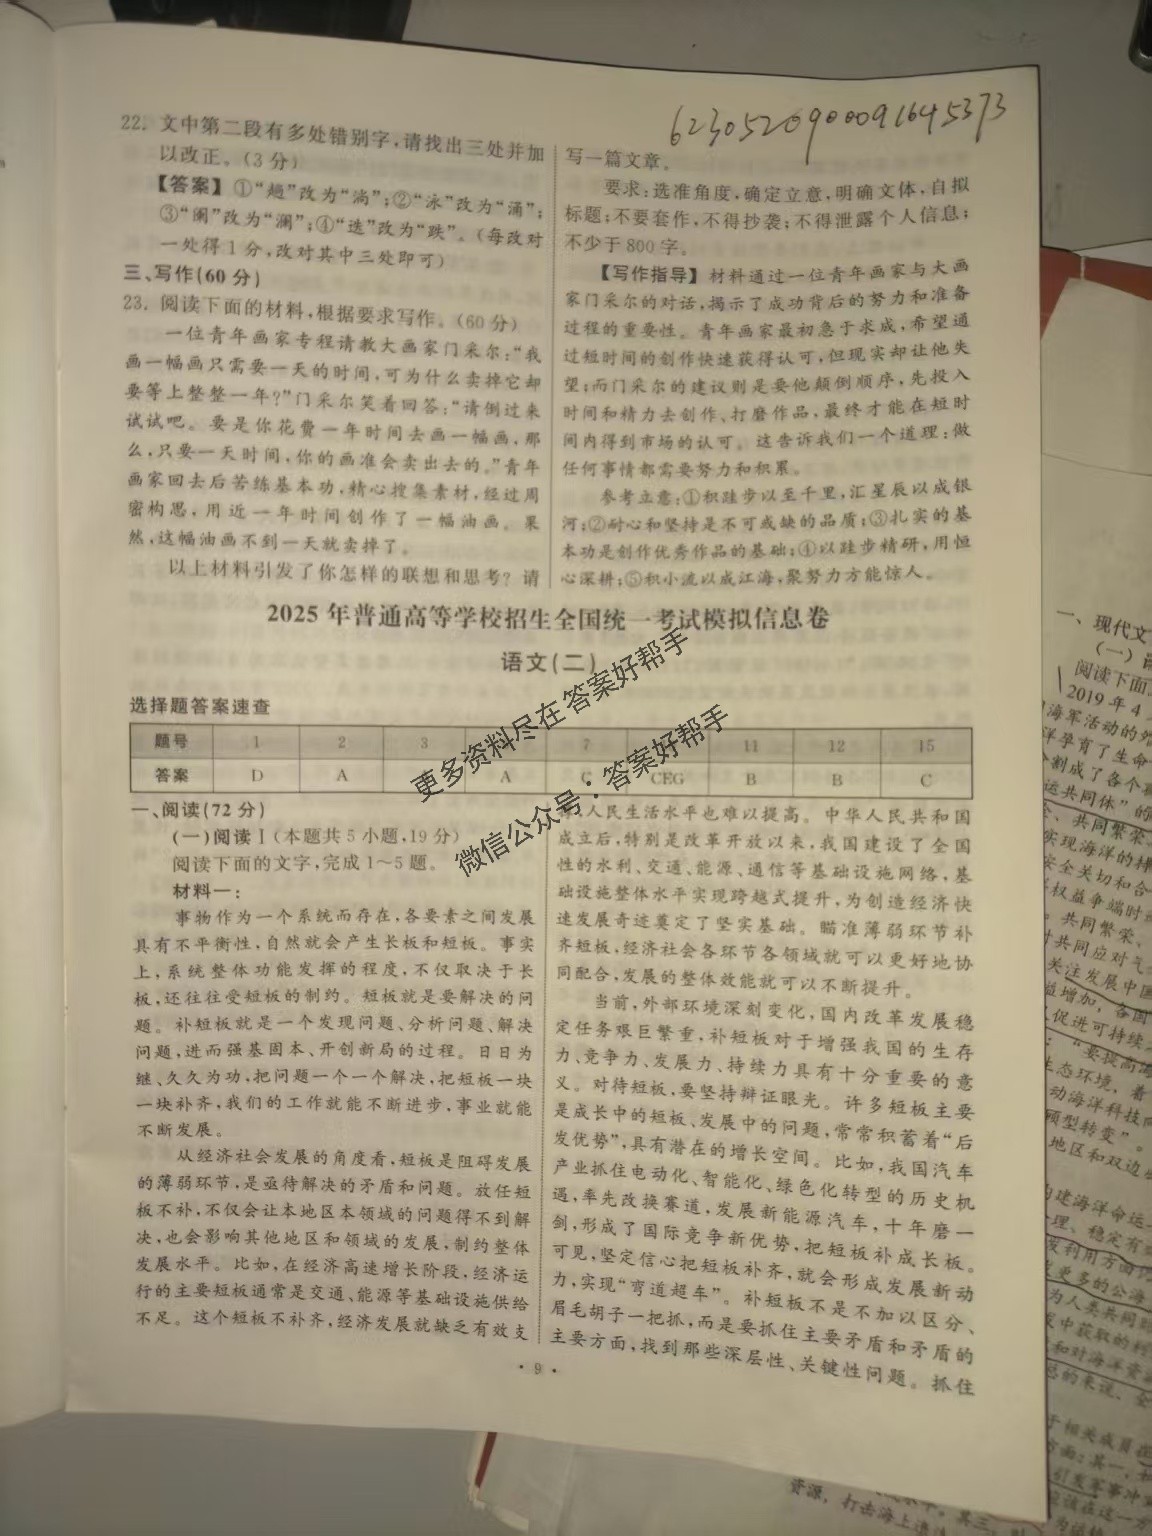 6230520900091645373
22. 文中第二段有多处错别字,请找出三处并加
以改正。(3分)
【答案】①“趟”改为“淌”;②“泳”改为“涌”;
③“阑”改为“澜”;④“迭”改为“跌”。(每改对
一处得1分,改对其中三处即可)
三、写作(60分)
23. 阅读下面的材料,根据要求写作。(60分)
一位青年画家专程请教大画家门采尔:“我
画一幅画只需要一天的时间,可为什么卖掉它却
要等上整整一年?”门采尔笑着回答:“请倒过来
试试吧。要是你花费一年时间去画一幅画,那
么,只要一天时间,你的画准会卖出去的。”青年
画家回去后苦练基本功,精心搜集素材,经过周
密构思,用近一年时间创作了一幅油画。果
然,这幅油画不到一天就卖掉了。
以上材料引发了你怎样的联想和思考?请
写一篇文章。
要求:选准角度,确定立意,明确文体,自拟
标题;不要套作,不得抄袭;不得泄露个人信息;
不少于800字。
【写作指导】材料通过一位青年画家与大画
家门采尔的对话,揭示了成功背后的努力和准备
过程的重要性。青年画家最初急于求成,希望通
过短时间的创作快速获得认可,但现实却让他失
望;而门采尔的建议则是要他颠倒顺序,先投入
时间和精力去创作、打磨作品,最终才能在短时
间内得到市场的认可。这告诉我们一个道理:做
任何事情都需要努力和积累。
参考立意:①积跬步以至千里,汇星辰以成银
河;②耐心和坚持是不可或缺的品质;③扎实的基
本功是创作优秀作品的基础;④以跬步精研,用恒
心深耕;⑤积小流以成江海,聚努力方能惊人。
2025年普通高等学校招生全国统一考试模拟信息卷
语文(二)
选择题答案速查
题号 1 2 3 7 11 12 15
答案 D A A C CEG B B C
更多资料尽在答案好帮手
微信公众号:答案好帮手
一、阅读(72分)
(一)阅读Ⅰ(本题共5小题,19分)
阅读下面的文字,完成1~5题。
材料一:
事物作为一个系统而存在,各要素之间发展
具有不平衡性,自然就会产生长板和短板。事实
上,系统整体功能发挥的程度,不仅取决于长
板,还往往受短板的制约。短板就是要解决的问
题。补短板就是一个发现问题、分析问题、解决
问题,进而强基固本、开创新局的过程。日日为
继、久久为功,把问题一个一个解决,把短板一块
一块补齐,我们的工作就能不断进步,事业就能
不断发展。
从经济社会发展的角度看,短板是阻碍发展
的薄弱环节,是亟待解决的矛盾和问题。放任短
板不补,不仅会让本地区本领域的问题得不到解
决,也会影响其他地区和领域的发展,制约整体
发展水平。比如,在经济高速增长阶段,经济运
行的主要短板通常是交通、能源等基础设施供给
不足。这个短板不补齐,经济发展就缺乏有效支
,人民生活水平也难以提高。中华人民共和国
成立后,特别是改革开放以来,我国建设了全国
性的水利、交通、能源、通信等基础设施网络,基
础设施整体水平实现跨越式提升,为创造经济快
速发展奇迹奠定了坚实基础。瞄准薄弱环节补
齐短板,经济社会各环节各领域就可以更好地协
同配合,发展的整体效能就可以不断提升。
当前,外部环境深刻变化,国内改革发展稳
定任务艰巨繁重,补短板对于增强我国的生存
力、竞争力、发展力、持续力具有十分重要的意
义。对待短板,要坚持辩证眼光。许多短板主要
是成长中的短板、发展中的问题,常常积蓄着“后
发优势”,具有潜在的增长空间。比如,我国汽车
产业抓住电动化、智能化、绿色化转型的历史机
遇,率先改换赛道,发展新能源汽车,十年磨一
剑,形成了国际竞争新优势,把短板补成长板。
可见,坚定信心把短板补齐,就会形成发展新动
力,实现“弯道超车”。补短板不是不加以区分、
眉毛胡子一把抓,而是要抓住主要矛盾和矛盾的
主要方面,找到那些深层性、关键性问题。抓住
· 9 ·
一、现代文
阅读下面
2019年4
海军活动的
洋孕育了生命
割成了各个
运共同体”的
、共同繁荣
实现海洋的
安全关切和合
权益争端时
。共同繁荣、
对共同应对气
关注发展中国
益增加,各国
促进可持续
:“要提高海
生态环境,着
动海洋科技向
型转变”。
地区和双边
构建海洋命运
理、稳定有
发利用方面
更多的公海
为人类共同
中获取的利
和对海洋资源
总的来说,全
于相关成员
方面:其一,如
引发军事冲突
应该在这一方
资源,打击海上违